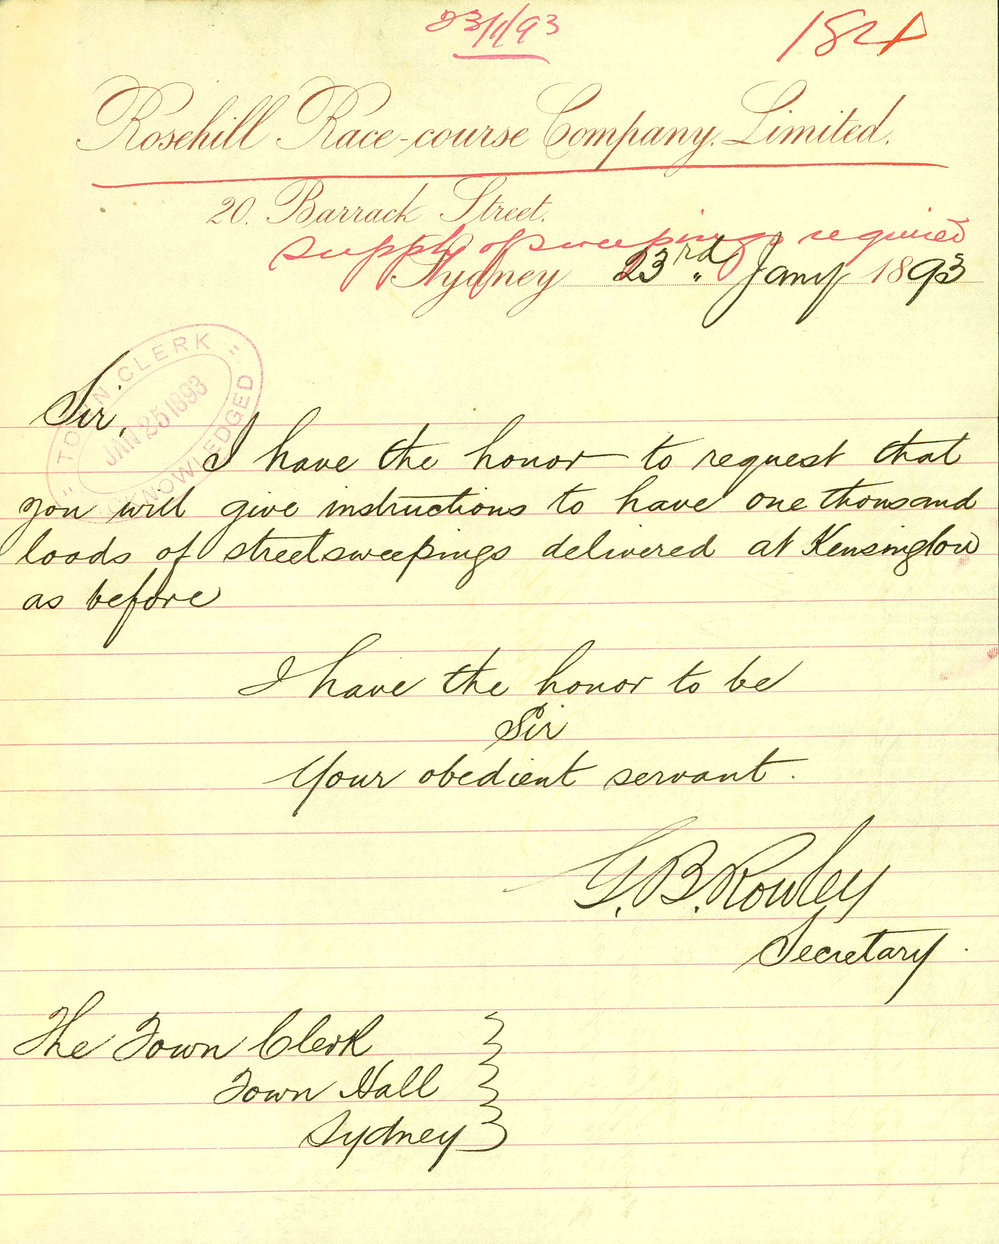 23/1/93
184
Rosehill Race-course Company, Limited.
20. Barrack Street.
supply of sweepings required
Sydney 23rd Jany 1893
TOWN CLERK
JAN 25 1893
ACKNOWLEDGED
Sir,
I have the honor to request that
you will give instructions to have one thousand
loads of streetsweepings delivered at Kensington
as before
I have the honor to be
Sir
Your obedient servant.
G. B. Rowley
Secretary.
The Town Clerk
Town Hall
Sydney